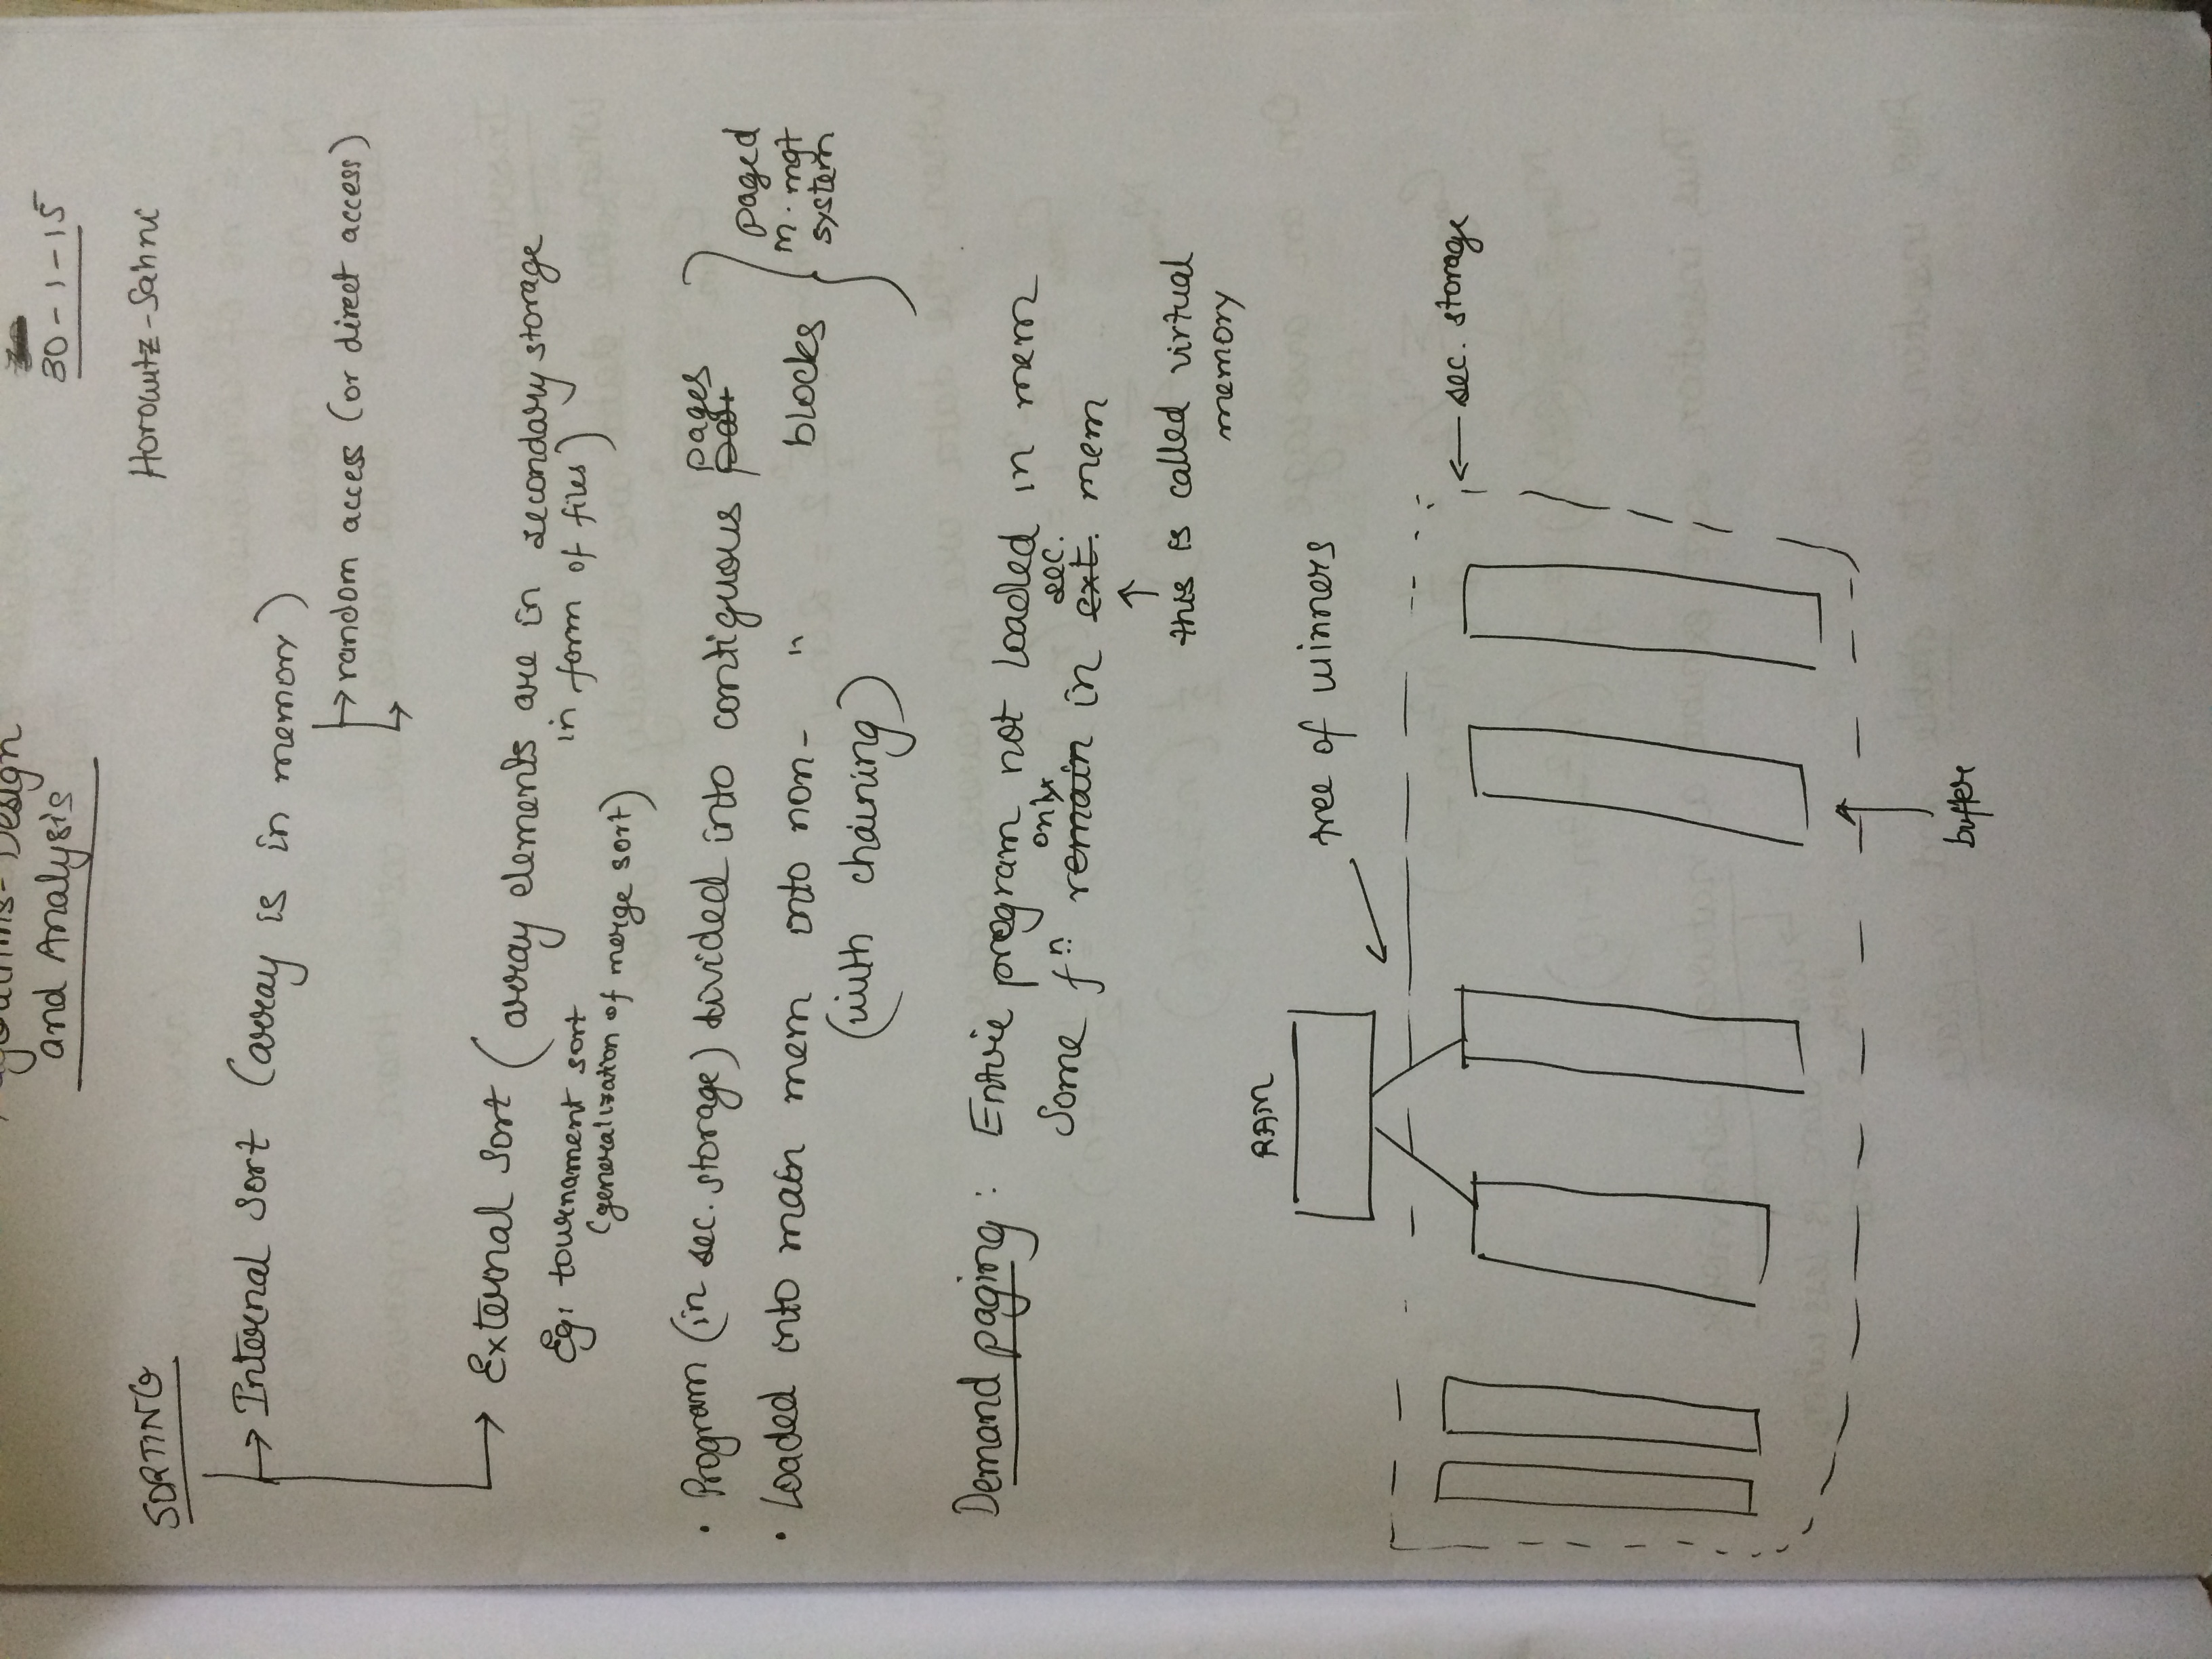 Algorithms - Design
and Analysis
30-1-15
Horowitz-Sahni
SORTING
Internal Sort (array is in memory)
random access (or direct access)
External Sort (array elements are in secondary storage
in form of files)
Eg: tournament sort
(generalization of merge sort)
• Program (in sec. storage) divided into contiguous pages
• Loaded into main mem onto non- " blocks
(with chaining)
paged
m. mgt
system
Demand paging : Entire program not loaded in mem
Some fⁿ only in sec. mem
this is called virtual
memory
RAM
tree of winners
sec. storage
buffer